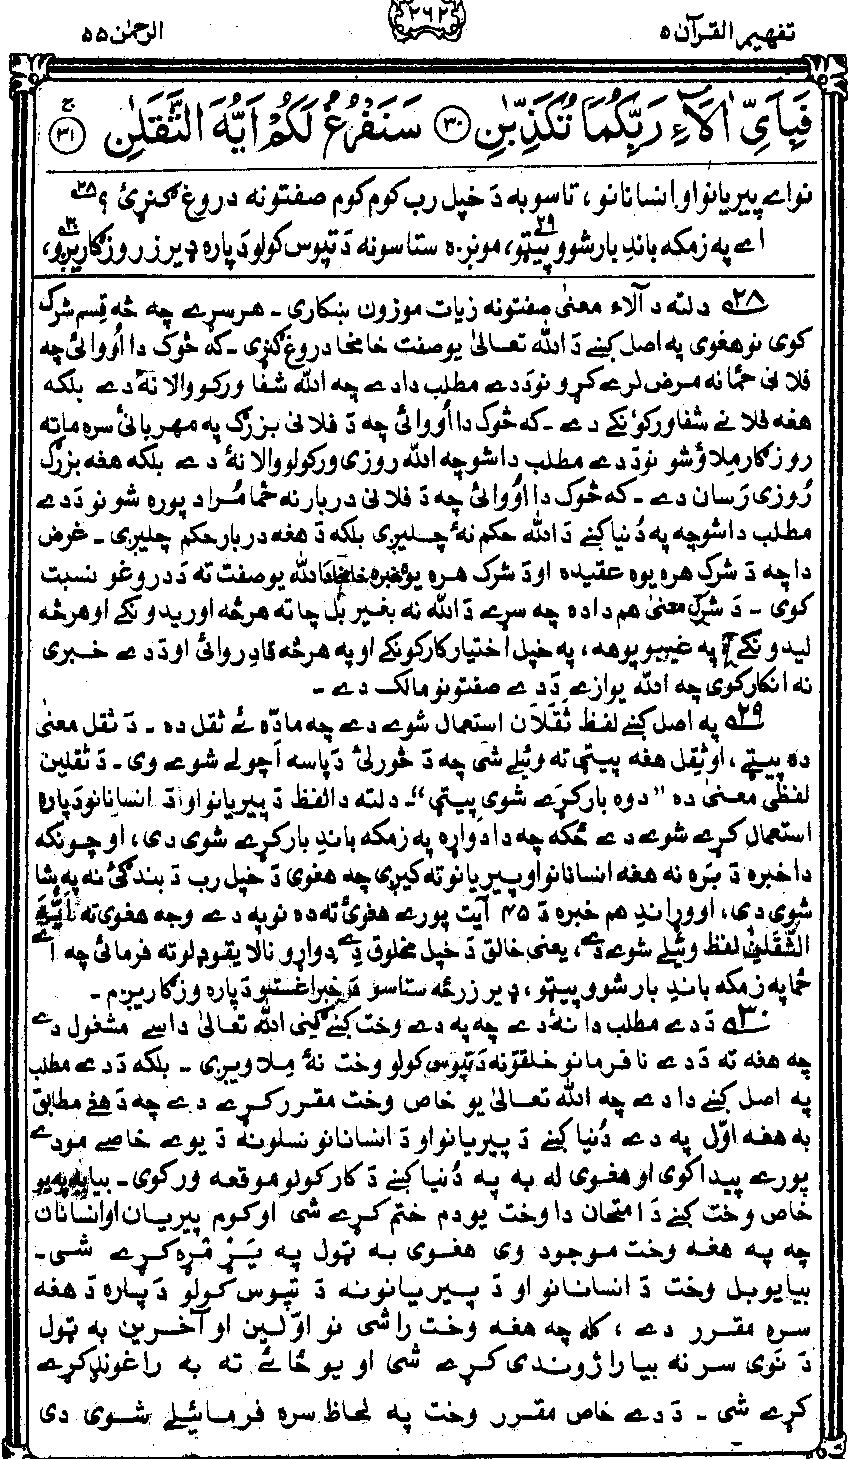 تفهيم القرآن ۵
۲۶۲
الرحمٰن ۵۵
فَبِاَىِّ اٰلَآءِ رَبِّكُمَا تُكَذِّبٰنِ ۳۰ سَنَفْرُغُ لَكُمْ اَيُّهَ الثَّقَلٰنِ ۳۱
نو اے پيريانو او انسانانو، تاسو به دَ خپل رب کوم کوم صفتونه دروغ ګنړئ؟ ۲۸
اے په زمکه باندِ بار شوو پيټو ۲۹، مونږه ستاسو نه دَ تپوس کولو دَ پاره ډير زر وزګاريږو ۳۰،
۲۸ دلته د آلاء معنىٰ صفتونه زيات موزون ښکارى ۔ هر سړے چه څه قسم شرک
کوى نو هغوى په اصل کښے دَ الله تعالىٰ يو صفت خامخا دروغ ګنړى ۔ که څوک دا اُووائى چه
فلانى ځما نه مرض لرے کړو نو دَدے مطلب دا دے چه الله شفا ورکو والا نهٔ دے بلکه
هغه فلانے شفا ورکوُنکے دے ۔ که څوک دا اُووائى چه دَ فلانى بزرګ په مهربانئ سره ماته
روزګار مِلاؤ شو نو دَدے مطلب دا شو چه الله روزى ورکولو والا نهٔ دے بلکه هغه بزرګ
رُوزى رَسان دے ۔ که څوک دا اُووائى چه دَ فلانى دربار نه ځما مُراد پوره شو نو دَدے
مطلب دا شو چه په دُنيا کښے دَ الله حکم نهٔ چليږى بلکه دَ هغه دربار حکم چليږى ۔ غرض
دا چه دَ شرک هره يوه عقيده او دَ شرک هره يوه خبره خامخا دَ الله يو صفت ته دَ دروغو نسبت
کوى ۔ دَ شرک معنىٰ هم دا ده چه سړے دَ الله نه بغير بل چا ته هر څه اوريدونکے او هر څه
ليدونکے، په غيبو پوهه، په خپل اختيار کار کونکے او په هر څه قادر وائى او دَدے خبرى
نه انکار کوى چه الله يوازے دَدے صفتونو مالک دے ۔
۲۹ په اصل کښے لفظ ثَقَلَان استعمال شوے دے چه مادّه ئے ثقل ده ۔ دَ ثقل معنىٰ
ده پيټے، او ثِقل هغه پيټى ته وئيلے شى چه دَ سُورلئ دَپاسه اَچولے شوے وى ۔ دَ ثقلين
لفظى معنىٰ ده "دوه بار کړے شوى پيټى" ۔ دلته دا لفظ دَ پيريانو او دَ انسانانو دَپاره
استعمال کړے شوے دے ځکه چه دا دواړه په زمکه باندِ بار کړے شوى دى، او چونکه
دا خبره دَ بَره نه هغه انسانانو او پيريانو ته کيږى چه هغوى دَ خپل رب دَ بندګئ نه په شا
شوى دى، او وړاندِ هم خبره دَ ۴۵ آيت پورے هغوئ ته ده نو په دے وجه هغوى ته اَيُّهَ
الثَّقَلٰنِ لفظ وئيلے شوے دے، يعنى خالق دَ خپل مخلوق دِ دے دواړو نالايقو ډلو ته فرمائى چه اے
ځما په زمکه باندِ بار شوو پيټو، ډير زر زهٔ ستاسو دَ خبر اغستو دَپاره وزګاريږم ۔
۳۰ دَدے مطلب دا نهٔ دے چه په دے وخت کښے ګنى الله تعالىٰ داسے مشغول دے
چه هغه ته دَدے نافرمانو خلقو نه دَ تپوس کولو وخت نهٔ مِلاويږى ۔ بلکه دَدے مطلب
په اصل کښے دا دے چه الله تعالىٰ يو خاص وخت مقرر کړے دے چه دَ هغے مطابق
به هغه اوّل په دے دُنيا کښے دَ پيريانو او دَ انسانانو نسلونه دَ يوے خاصے مودے
پورے پيدا کوى او هغوى له به په دُنيا کښے دَ کار کولو موقعه ورکوى ۔ بيا به په يو
خاص وخت کښے دَ امتحان دا وخت يو دم ختم کړے شى او کوم پيريان او انسانان
چه په هغه وخت موجود وى هغوى به ټول په يَو مَړه کړے شى ۔
بيا يو بل وخت دَ انسانانو او دَ پيريانو نه دَ تپوس کولو دَپاره دَ هغه
سره مقرر دے، کله چه هغه وخت راشى نو اوّلين او آخرين به ټول
دَ نوى سر نه بيا راژوندى کړے شى او يو ځائے ته به راغونډ کړے
کړے شى ۔ دَدے خاص مقرر وخت په لحاظ سره فرمائيلے شوى دى